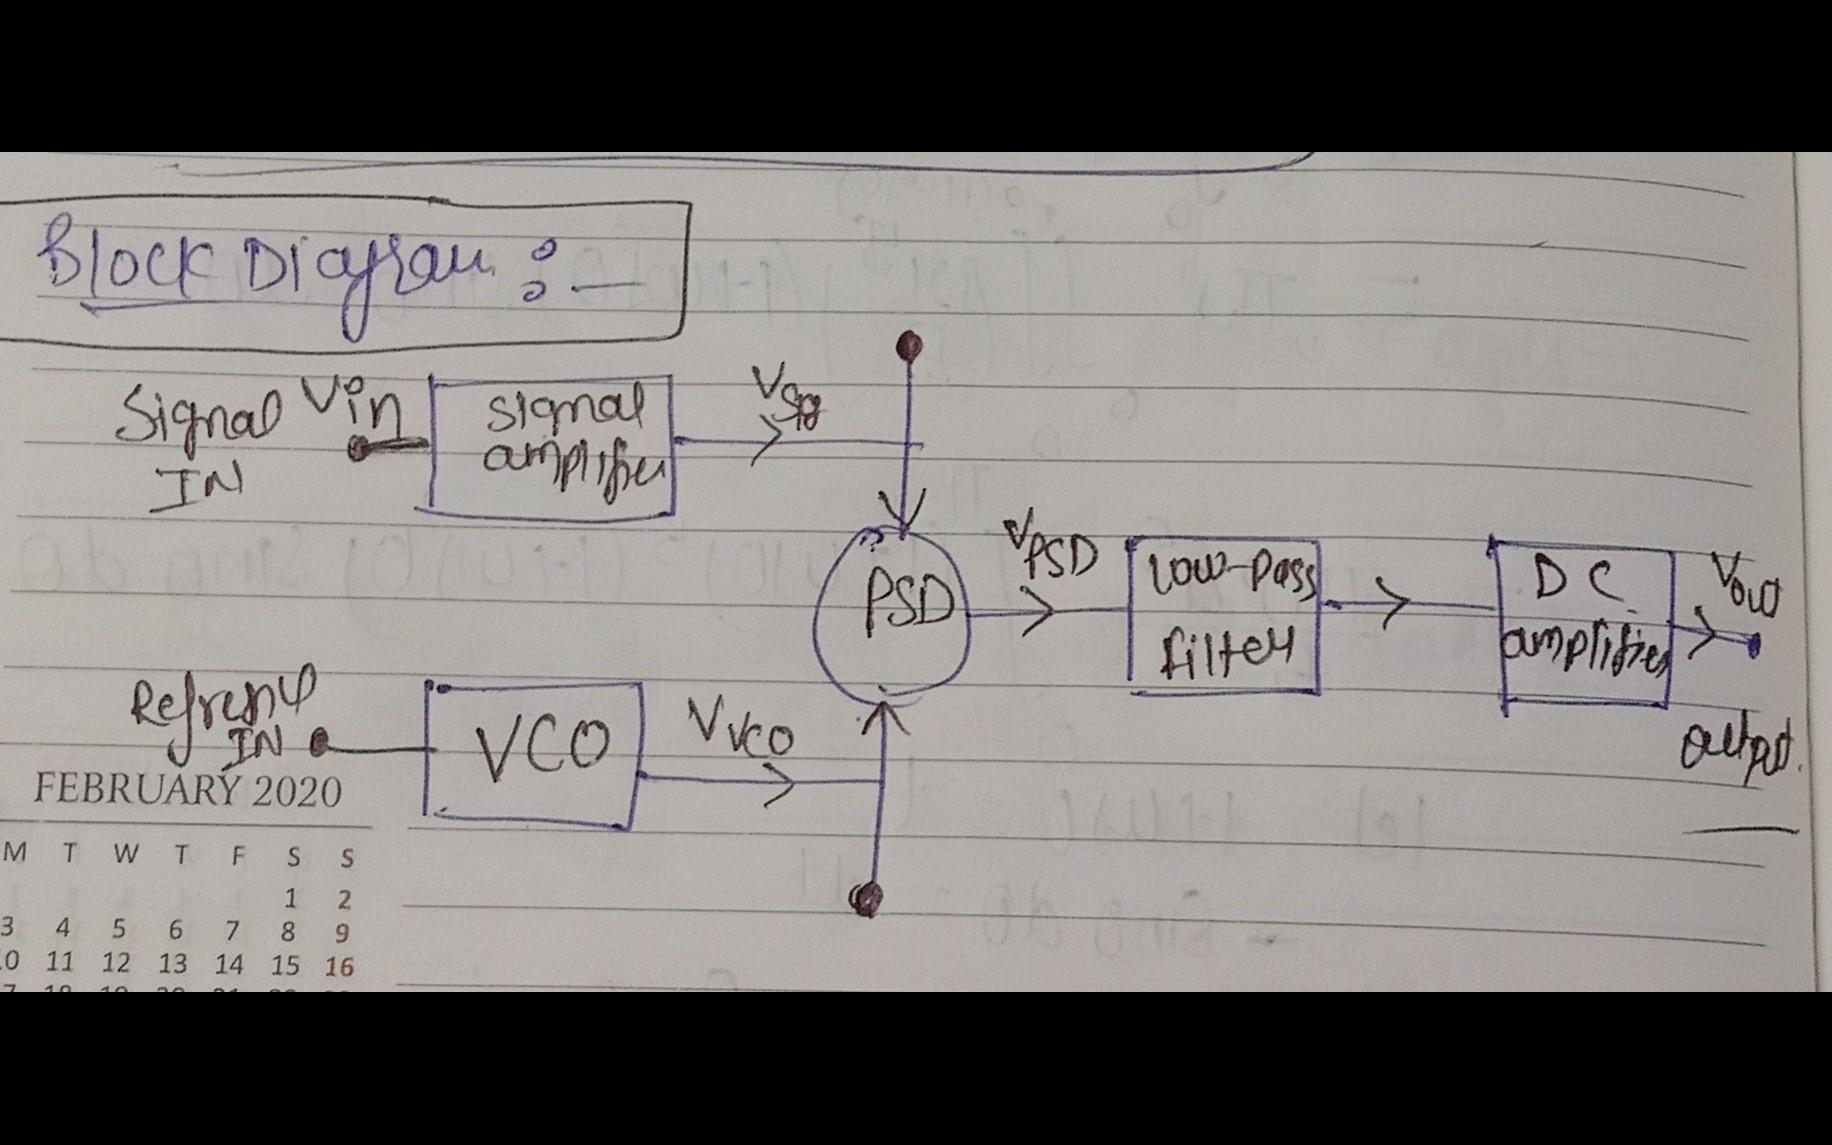 Block Diagram :-
Signal Vin
IN
signal
amplifier
Vsig
PSD
VPSD
low-pass
filter
DC
amplifier
Vout
output.
IN
VCO
VVCO
FEBRUARY 2020
M T W T F S S
1 2
3 4 5 6 7 8 9
11 12 13 14 15 16